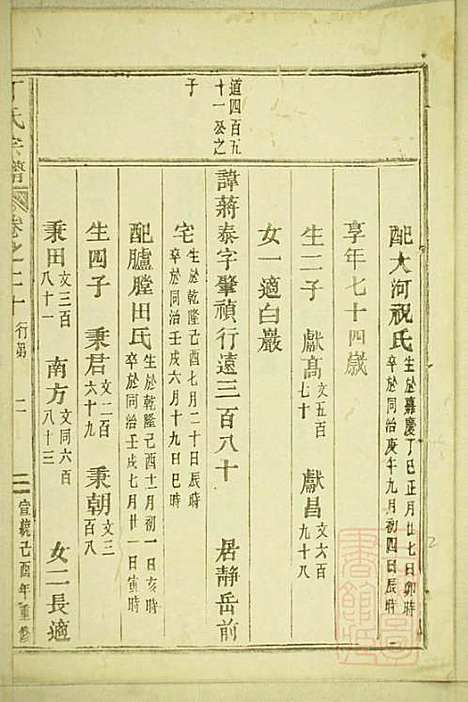 配大河祝氏 生於嘉慶丁巳正月廿七日卯時
卒於同治庚午九月初四日辰時
享年七十四歲
生二子 獻高 文五百
七十 獻昌 文六百
九十八
女一適白巖
道四百五
十一公之
子
諱蔣泰字肇禎行遠三百八十 居靜岳前
宅 生於乾隆己酉七月二十日辰時
卒於同治壬戌六月十九日巳時
配臚膛田氏 生於乾隆己酉十一月初一日亥時
卒於同治壬戌七月廿一日寅時
生四子 秉君 文二百
六十九 秉朝 文三
百八
秉田 文三百
八十一 南方 文同六百
八十三 女二長適
丁氏宗譜 卷之二十 行第 二 宣統己酉年重修